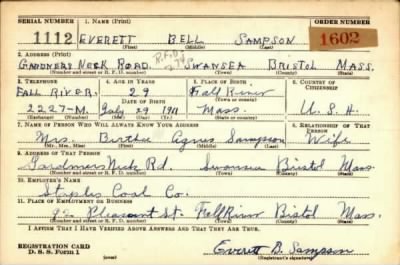 SERIAL NUMBER 1. NAME (Print) ORDER NUMBER
1112 EVERETT BELL SAMPSON 1602
(First) (Middle) (Last)
2. ADDRESS (Print) R.F.D.
GARDNERS NECK ROAD. SWANSEA BRISTOL MASS.
(Number and street or R. F. D. number) (Town) (County) (State)
3. TELEPHONE 4. AGE IN YEARS 5. PLACE OF BIRTH 6. COUNTRY OF CITIZENSHIP
FALL RIVER. 29 Fall River
(Town or county)
2227-M. July 29 1911 Mass. U. S. A.
(Exchange) (Number) (Mo.) (Day) (Yr.) (State or country)
7. NAME OF PERSON WHO WILL ALWAYS KNOW YOUR ADDRESS 8. RELATIONSHIP OF THAT PERSON
Mrs. Agnes Sampson Wife
(Mr., Mrs., Miss) (First) (Middle) (Last)
9. ADDRESS OF THAT PERSON
Gardners Neck Rd. Swansea Bristol Mass.
(Number and street or R. F. D. number) (Town) (County) (State)
10. EMPLOYER'S NAME
Staples Coal Co.
11. PLACE OF EMPLOYMENT OR BUSINESS
Pleasant St. Fall River Bristol Mass.
(Number and street or R. F. D. number) (Town) (County) (State)
I AFFIRM THAT I HAVE VERIFIED ABOVE ANSWERS AND THAT THEY ARE TRUE.
REGISTRATION CARD
D. S. S. Form 1 (over) Everett B. Sampson
(Registrant's signature)